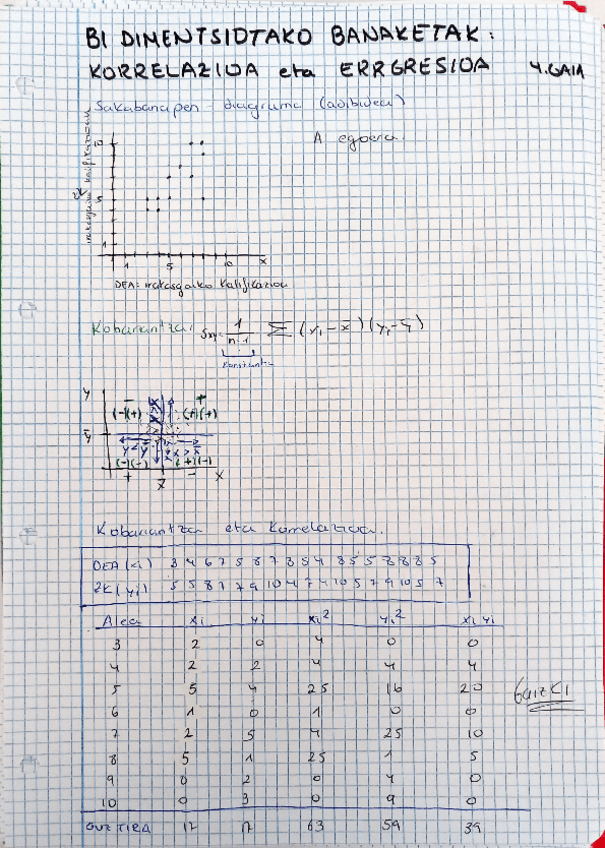 BI DIMENTSIOTAKO BANAKETAK:
KORRELAZIOA eta ERRGRESIOA 4.GAIA
Sakabanapen-diagrama (adibidea)
A egoera.
10
5
1
1 5 10 x
DEA: irakasgaiko Kalifikazioa
Kobariantza: Sxy = 1/n-1 Σ (xi - x̄)(yi - ȳ)
Konstantea
y
- +
(-)(+) (+)(+)
ȳ
(-)(-) (+)(-)
+ x̄ - x
Kobariantza eta Korrelazioa.
DEA (xi) 3 4 6 7 5 8 7 3 5 4 8 5 5 8 8 8 5
ZK (yi) 5 5 8 7 7 9 10 4 7 4 10 5 7 9 10 5 7
Alea xi yi xi² yi² xi yi
3 2 0 4 0 0
4 2 2 4 4 4
5 5 4 25 16 20
GAIZKI
6 1 0 1 0 0
7 2 5 4 25 10
8 5 1 25 1 5
9 0 2 0 4 0
10 0 3 0 9 0
GUZTIRA 17 17 63 59 39